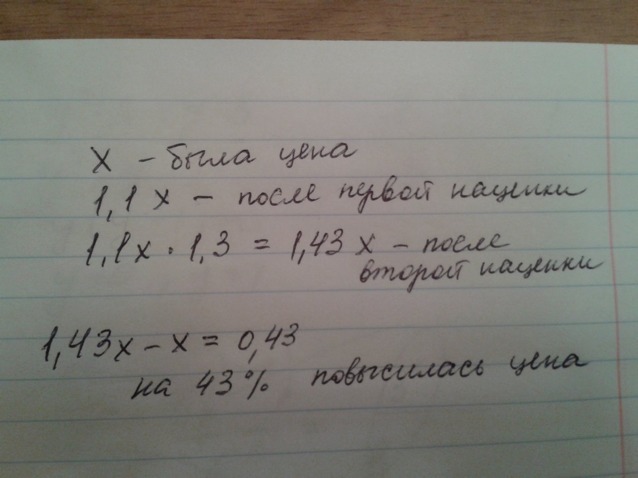 x – была цена
1,1 x – после первой наценки
1,1x · 1,3 = 1,43 x – после
второй наценки
1,43x – x = 0,43
на 43% повысилась цена